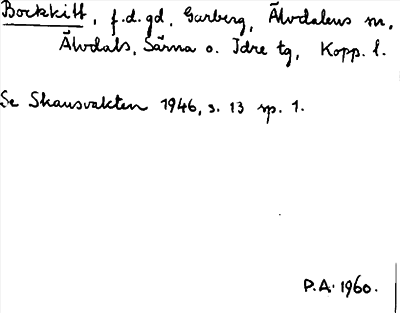 Bockkitt, f.d. gd, Garberg, Älvdalens sn,
Älvdals, Särna o. Idre tg, Kopp. l.
Se Skansvakten 1946, s. 13 sp. 1.
P.A. 1960.